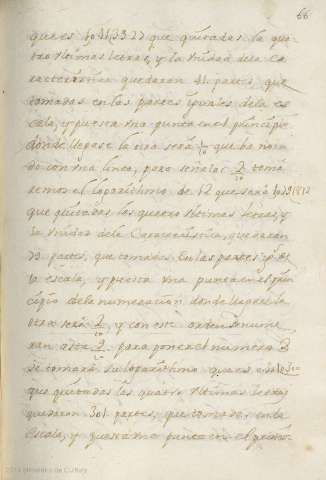 66
que es 10413927 que quitadas la qua
tro ultimas letras, y la Unidad de la Ca
racteristica quedaran 41 partes, que
tomadas en las partes iguales de la es
cala, y puesta una punta en el principio
donde llegare la otra sera 1/10 que ha nota
do con una linea, para señalar 2/10 toma
remos el logarithmo de 12 que sera
que quitadas las quatro ultimas letras, y
la Unidad de la Caracteristica, quedaran
79 partes, que tomadas en las partes yguales de
la escala, y puesta una punta en el prin
cipio de la numeracion donde llegare la
otra sera 2/10, y con este orden se nume
ran asta para poner el numero 2
se tomara su logarithmo que es
que quitadas las quatro ultimas letras
quedaran 301 partes, que tomadas en la
escala, y puesta una punta en el princi